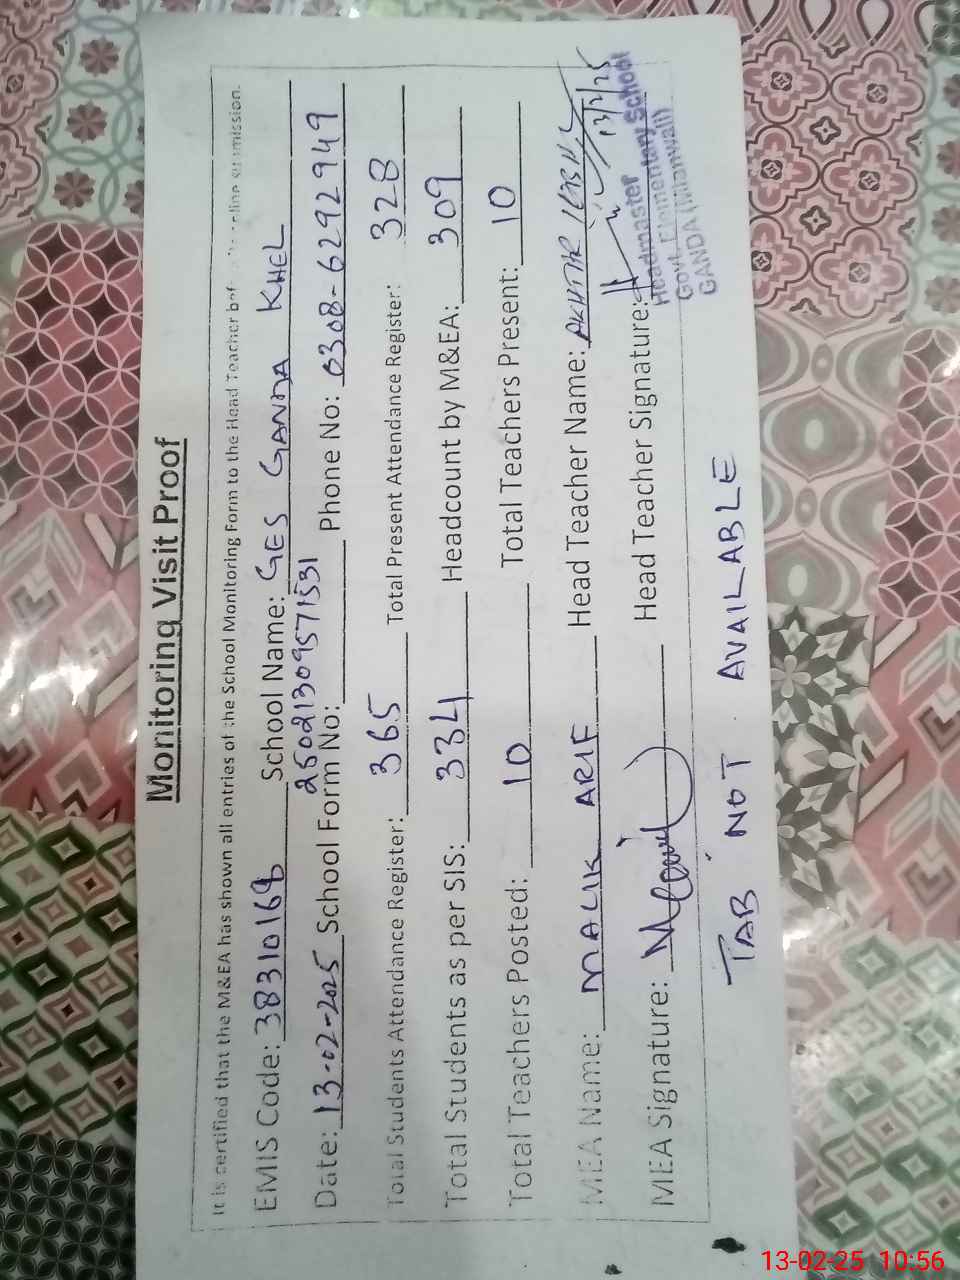 Monitoring Visit Proof
It is certified that the M&EA has shown all entries of the School Monitoring Form to the Head Teacher before online submission.
EMIS Code: 38310168 School Name: GES GANDA KHEL
Date: 13-02-2025 School Form No: 25021309571531 Phone No: 0308-6292949
Total Students Attendance Register: 365 Total Present Attendance Register: 328
Total Students as per SIS: 334 Headcount by M&EA: 309
Total Teachers Posted: 10 Total Teachers Present: 10
MEA Name: MALIK ARIF Head Teacher Name: AKHTAR
MEA Signature: Head Teacher Signature:
13/2/25
Headmaster
Govt. Elementary School
GANDA (Mianwali)
TAB NOT AVAILABLE
13-02-25 10:56